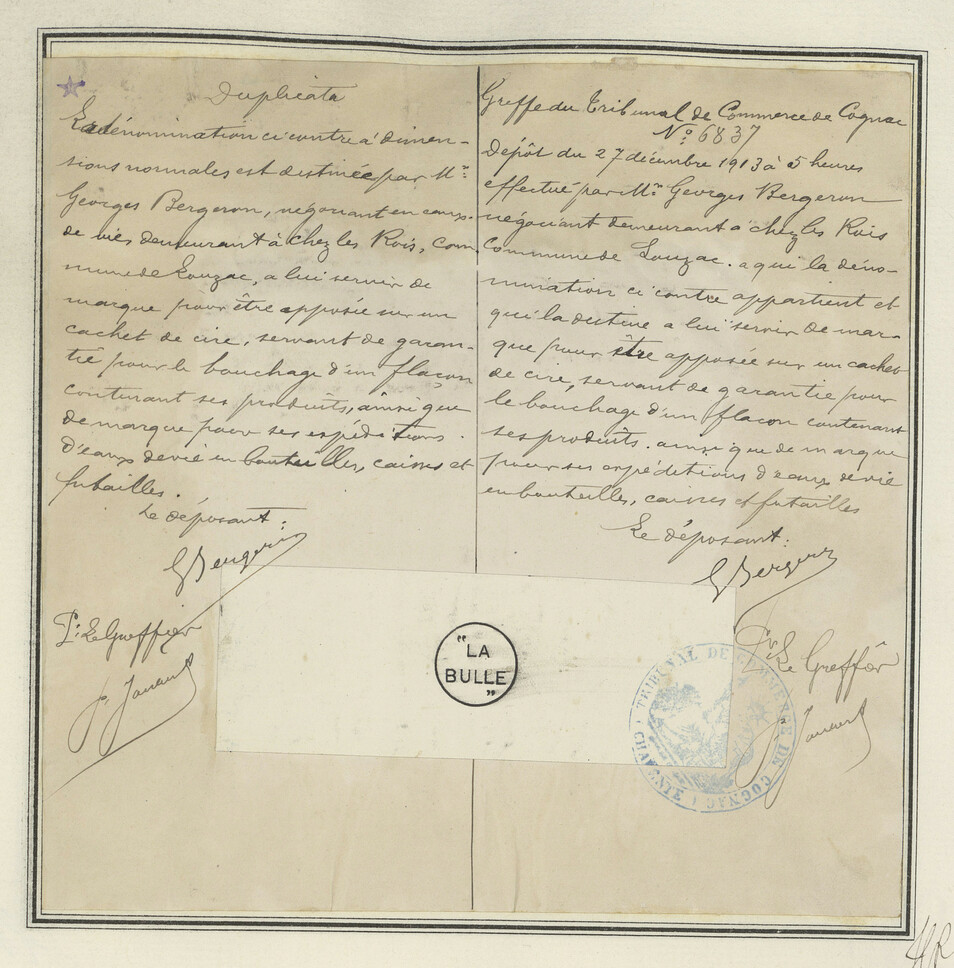 Duplicata
La dénomination ci contre à dimen-
sions normales est destinée par Mr.
Georges Bergeron, négociant en eaux-
de vies demeurant à chez les Rois, com
mune de Louzac, a lui servir de
marque pour être apposée sur un
cachet de cire, servant de garan-
tie pour le bouchage d'un flaçon
contenant ses produits, ainsi que
de marque pour ses expéditions
d'eaux de vie en bouteilles, caisses et
futailles.
Le déposant:
G Bergeron
Pr. Le Greffier
Greffe du Tribunal de Commerce de Cognac
No. 6837
Dépôt du 27 décembre 1913 à 5 heures
effectué par Mr. Georges Bergeron
négociant demeurant à chez les Rois
Commune de Louzac. a qui la déno-
mination ci contre appartient et
qui la destine a lui servir de mar-
que pour être apposée sur un cachet
de cire, servant de garantie pour
le bouchage d'un flacon contenant
ses produits. ainsi que de marque
pour ses expéditions d'eaux de vie
en bouteilles, caisses et futailles
Le déposant:
G Bergeron
Pr. Le Greffier
"LA
BULLE"
TRIBUNAL DE COMMERCE DE COGNAC
CHARENTE